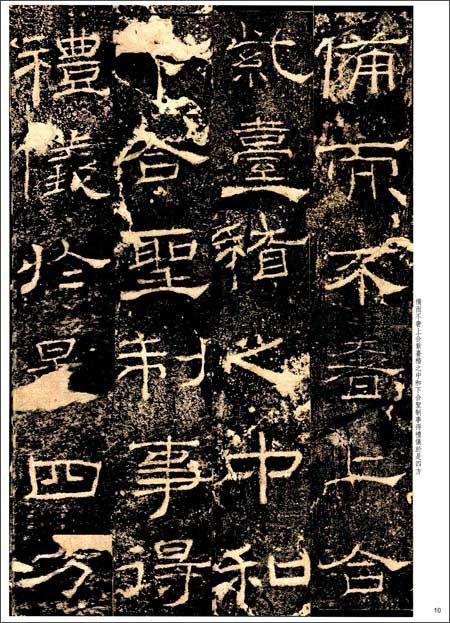 備而不奢上合
紫臺稽之中和
下合聖制事得
禮儀於是四方
備而不奢上合紫臺稽之中和下合聖制事得禮儀於是四方
10